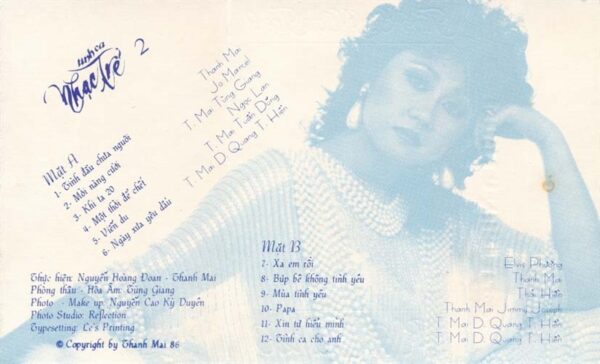 tình ca
Nhạc Trẻ 2
Mặt A
1- Tình đầu chưa nguôi
2- Môi nàng cười
3- Khi ta 20
4- Một thời để chết
5- Viễn du
6- Ngày xưa yêu dấu
Thanh Mai
Jo Marcel
T. Mai Tùng Giang
Ngọc Lan
T. Mai Tuấn Dũng
T. Mai D. Quang T. Hân
Thực hiện: Nguyễn Hoàng Đoan - Thanh Mai
Phòng thâu - Hòa Âm: Tùng Giang
Photo - Make up: Nguyễn Cao Kỳ Duyên
Photo Studio: Reflection
Typesetting: Le's Printing
© Copyright by Thanh Mai 86
Mặt B
7- Xa em rồi
8- Búp bê không tình yêu
9- Mùa tình yêu
10- Papa
11- Xin tự hiểu mình
12- Tình ca cho anh
Elvis Phương
Thanh Mai
Thái Hân
Thanh Mai Jimmy Joseph
T. Mai D. Quang T. Hân
T. Mai D. Quang T. Hân